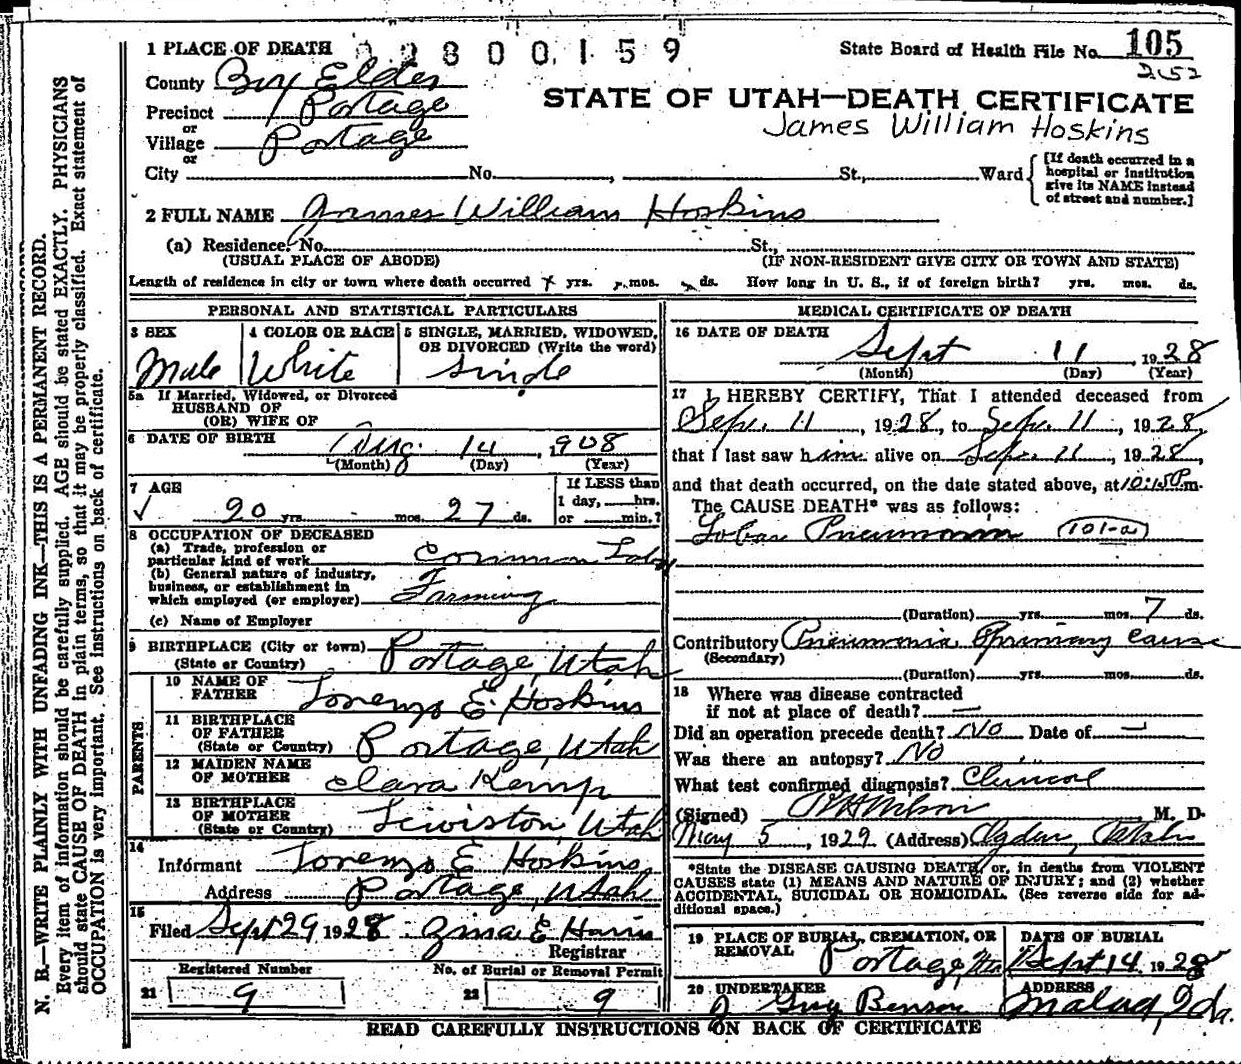 1 PLACE OF DEATH 02800159 State Board of Health File No. 105
2152
County Box Elder
STATE OF UTAH—DEATH CERTIFICATE
Precinct Portage
James William Hoskins
or
Village Portage
or
City No. , St., Ward
[If death occurred in a
hospital or institution
give its NAME instead
of street and number.]
2 FULL NAME James William Hoskins
(a) Residence. No. St.,
(USUAL PLACE OF ABODE) (IF NON-RESIDENT GIVE CITY OR TOWN AND STATE)
Length of residence in city or town where death occurred yrs. mos. ds. How long in U. S., if of foreign birth? yrs. mos. ds.
PERSONAL AND STATISTICAL PARTICULARS
3 SEX 4 COLOR OR RACE 5 SINGLE, MARRIED, WIDOWED,
OR DIVORCED (Write the word)
Male White Single
5a If Married, Widowed, or Divorced
HUSBAND OF
(OR) WIFE OF
6 DATE OF BIRTH Aug. 14, 1908
(Month) (Day) (Year)
7 AGE If LESS than
1 day, hrs.
20 yrs. mos. 27 ds. or min.?
8 OCCUPATION OF DECEASED
(a) Trade, profession or
particular kind of work Common Labor
(b) General nature of industry,
business, or establishment in
which employed (or employer) Farming
(c) Name of Employer
9 BIRTHPLACE (City or town) Portage, Utah
(State or Country)
PARENTS
10 NAME OF
FATHER Lorenzo E. Hoskins
11 BIRTHPLACE
OF FATHER
(State or Country) Portage, Utah
12 MAIDEN NAME
OF MOTHER Clara Kemp
13 BIRTHPLACE
OF MOTHER
(State or Country) Lewiston, Utah
14
Informant Lorenzo E Hoskins
Address Portage, Utah
15
Filed Sept 29 1928 Zina E Harris
Registrar
Registered Number No. of Burial or Removal Permit
21 9 22 9
MEDICAL CERTIFICATE OF DEATH
16 DATE OF DEATH
Sept 11, 1928
(Month) (Day) (Year)
17 I HEREBY CERTIFY, That I attended deceased from
Sep. 11, 1928, to Sep. 11, 1928,
that I last saw him alive on Sep. 11, 1928,
and that death occurred, on the date stated above, at m.
The CAUSE DEATH* was as follows:
Lobar Pneumonia (101-a)
(Duration) yrs. mos. 7 ds.
Contributory Pneumonia primary cause
(Secondary)
(Duration) yrs. mos. ds.
18 Where was disease contracted
if not at place of death? —
Did an operation precede death? No Date of —
Was there an autopsy? No
What test confirmed diagnosis? Clinical
(Signed) M. D.
May 5, 1929 (Address) Ogden, Utah
*State the DISEASE CAUSING DEATH, or, in deaths from VIOLENT
CAUSES state (1) MEANS AND NATURE OF INJURY; and (2) whether
ACCIDENTAL, SUICIDAL OR HOMICIDAL. (See reverse side for ad-
ditional space.)
19 PLACE OF BURIAL, CREMATION, OR
REMOVAL Portage, Utah
DATE OF BURIAL
Sept 14 1928
20 UNDERTAKER ADDRESS
J Guy Benson Malad, Ida.
READ CAREFULLY INSTRUCTIONS ON BACK OF CERTIFICATE
N. B.—WRITE PLAINLY WITH UNFADING INK—THIS IS A PERMANENT RECORD.
Every item of information should be carefully supplied. AGE should be stated EXACTLY. PHYSICIANS
should state CAUSE OF DEATH in plain terms, so that it may be properly classified. Exact statement of
OCCUPATION is very important. See instructions on back of certificate.